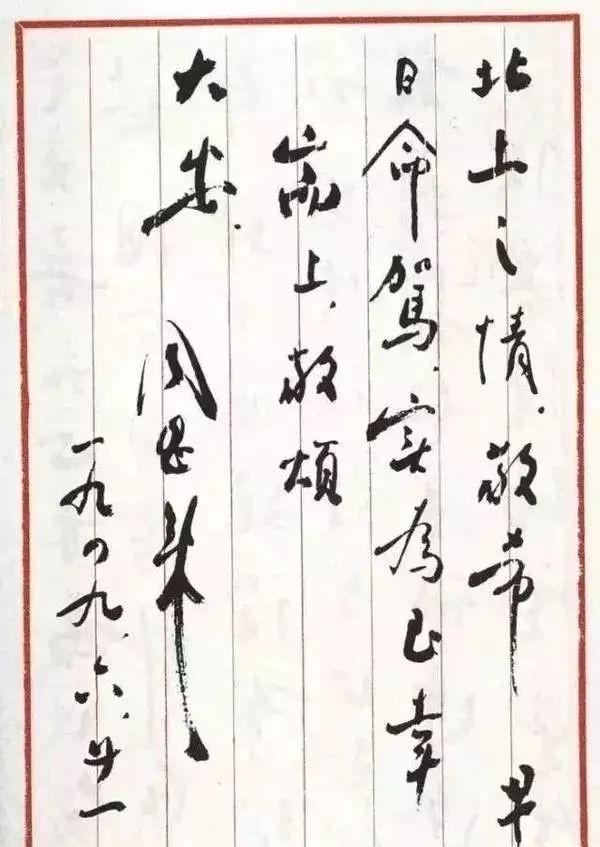 北上之情、敬希早
日命駕、实为至幸
耑上、敬颂
大安.
周恩来
一九四九、六、廿一